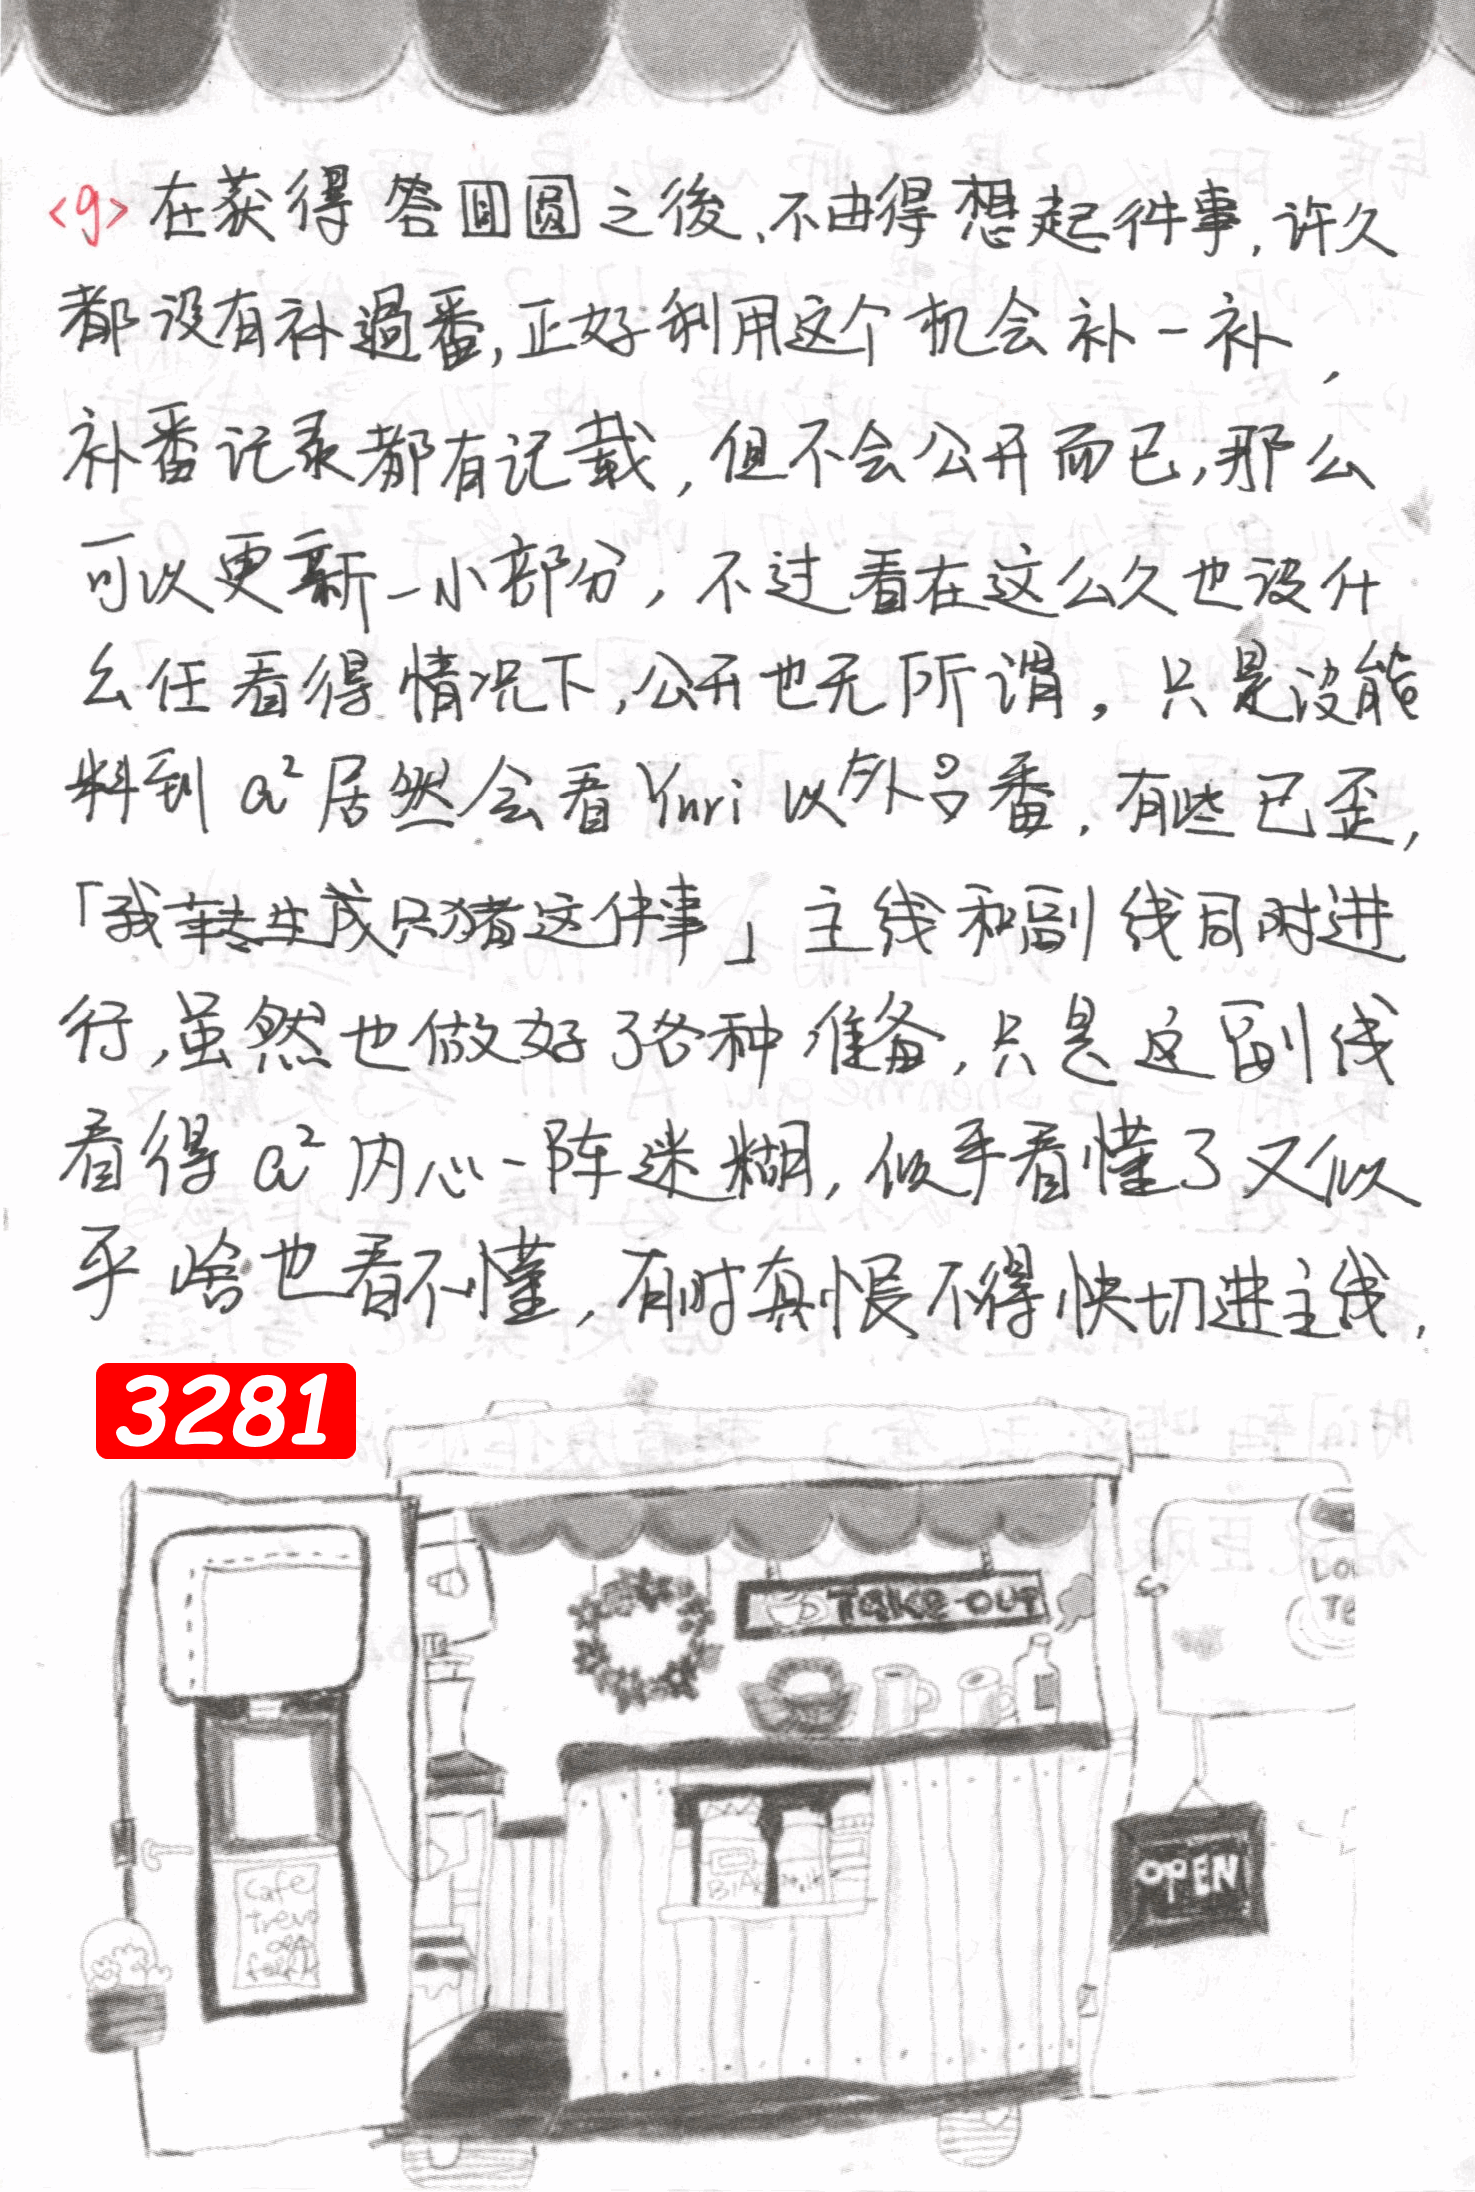 <g>在获得答囬圆之後、不由得想起件事，许久
都没有补過番，正好利用这个机会补一补，
补番记录都有记载，但不会公开而已，那么
可以更新一小部分，不过看在这么久也没什
么任看得情况下，公开也无所谓。只是没能
料到 a² 居然会看Yuri以外吕番，有些已歪，
「我转生成只猪这件事」主线和副线同时进
行，虽然也做好了各种准备，只是这副线
看得 a² 内心一阵迷糊，似乎看懂了又似
乎啥也看不懂，有时真恨不得快切进主线，
3281
Take-out
OPEN
Cafe